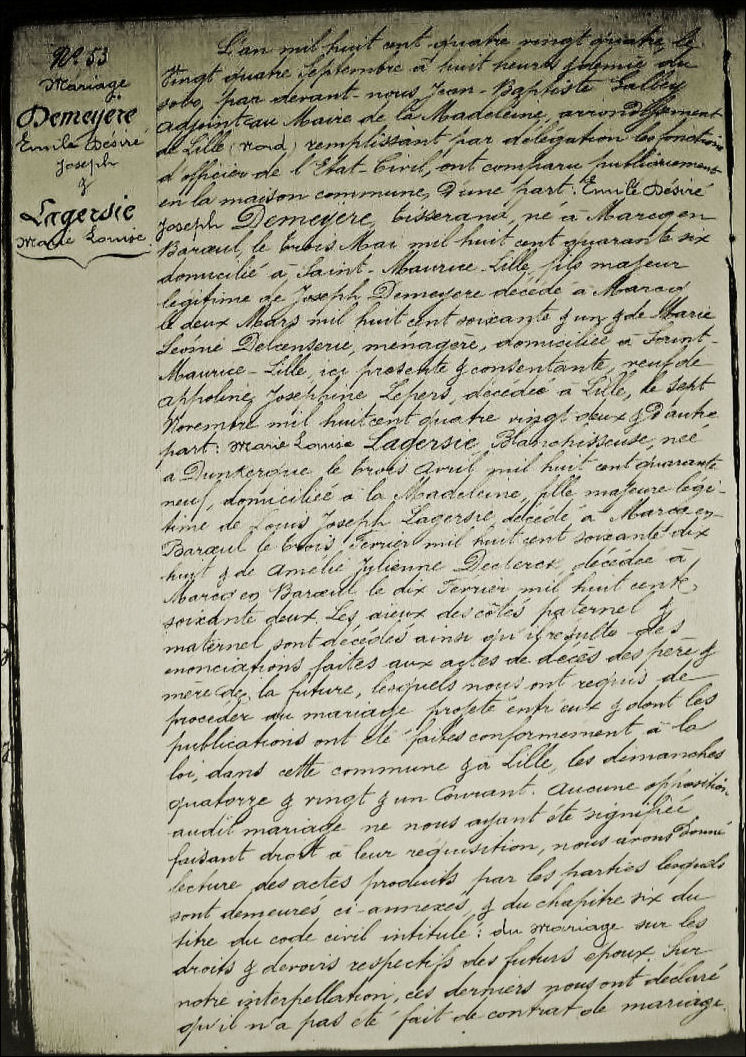 N° 53
Mariage
Demeyère
Emile Désiré
Joseph
&
Lagersie
Marie Louise
L'an mil huit cent quatre vingt quatre, le
vingt quatre Septembre à huit heures & demie du
soir, par devant nous Jean-Baptiste
adjoint au Maire de la Madeleine, arrondissement
de Lille (Nord) remplissant par délégation les fonctions
d'officier de l'Etat-Civil, ont comparu publiquement
en la maison commune, d'une part: Emile Désiré
Joseph Demeyère, tisserand, né à Marcq en
Barœul, le trois Mai mil huit cent quarante six
domicilié à Saint-Maurice-Lille, fils majeur
légitime de Joseph Demeyère décédé à Marcq
le deux Mars mil huit cent soixante & un & de Marie
Léonie Delcenserie, ménagère, domiciliée à Saint-
Maurice-Lille, ici présente & consentante, veuf de
Appoline Joséphine Lepers, décédée à Lille, le sept
Novembre mil huit cent quatre vingt deux & d'autre
part: Marie Louise Lagersie Blanchisseuse, née
à Dunkerque le trois Avril mil huit cent quarante
neuf, domiciliée à la Madeleine, fille majeure légi-
time de Louis Joseph Lagersie, décédé à Marcq en-
Barœul le trois Février mil huit cent soixante dix
huit & de Amélie Julienne Declerck, décédée à
Marcq en Barœul le dix Février mil huit cent
soixante deux. Les aïeux des côtés paternel &
maternel sont décédés ainsi qu'il résulte des
énonciations faites aux actes de décès des père &
mère de la future, lesquels nous ont requis de
procéder au mariage projeté entr'eux & dont les
publications ont été faites conformément à la
loi, dans cette commune & à Lille, les dimanches
quatorze & vingt & un Courant. Aucune opposition
audit mariage ne nous ayant été signifiée
faisant droit à leur réquisition, nous avons donné
lecture des actes produits par les parties lesquels
sont demeurés ci-annexés & du chapitre six du
titre du code civil intitulé: du Mariage sur les
droits & devoirs respectifs des futurs époux. Sur
notre interpellation, ces derniers nous ont déclaré
qu'il n'a pas été fait de contrat de mariage.